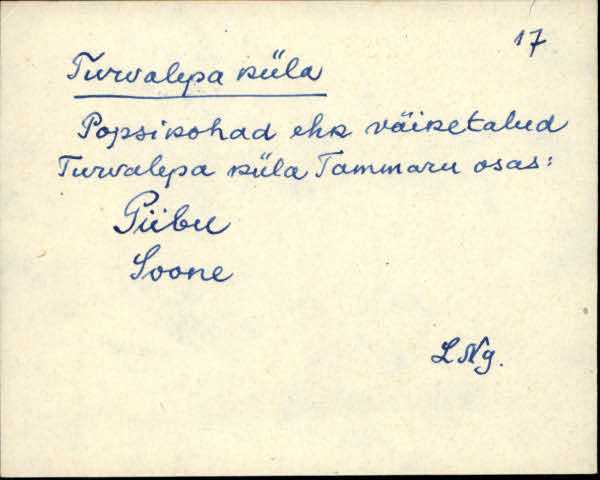 17
Turvalepa küla
Popsikohad ehk väiketalud
Turvalepa küla Tammaru osas:
Piibu
Soone
LNg.